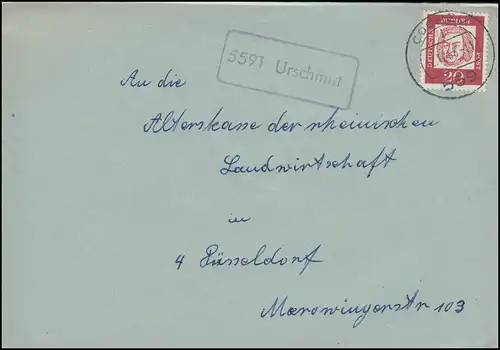 5591 Urschmitt
DEUTSCHE
POST
20
CO
An die
Alterskasse der rheinischen
Landwirtschaft
in
4 Düsseldorf
Merowingerstr 103